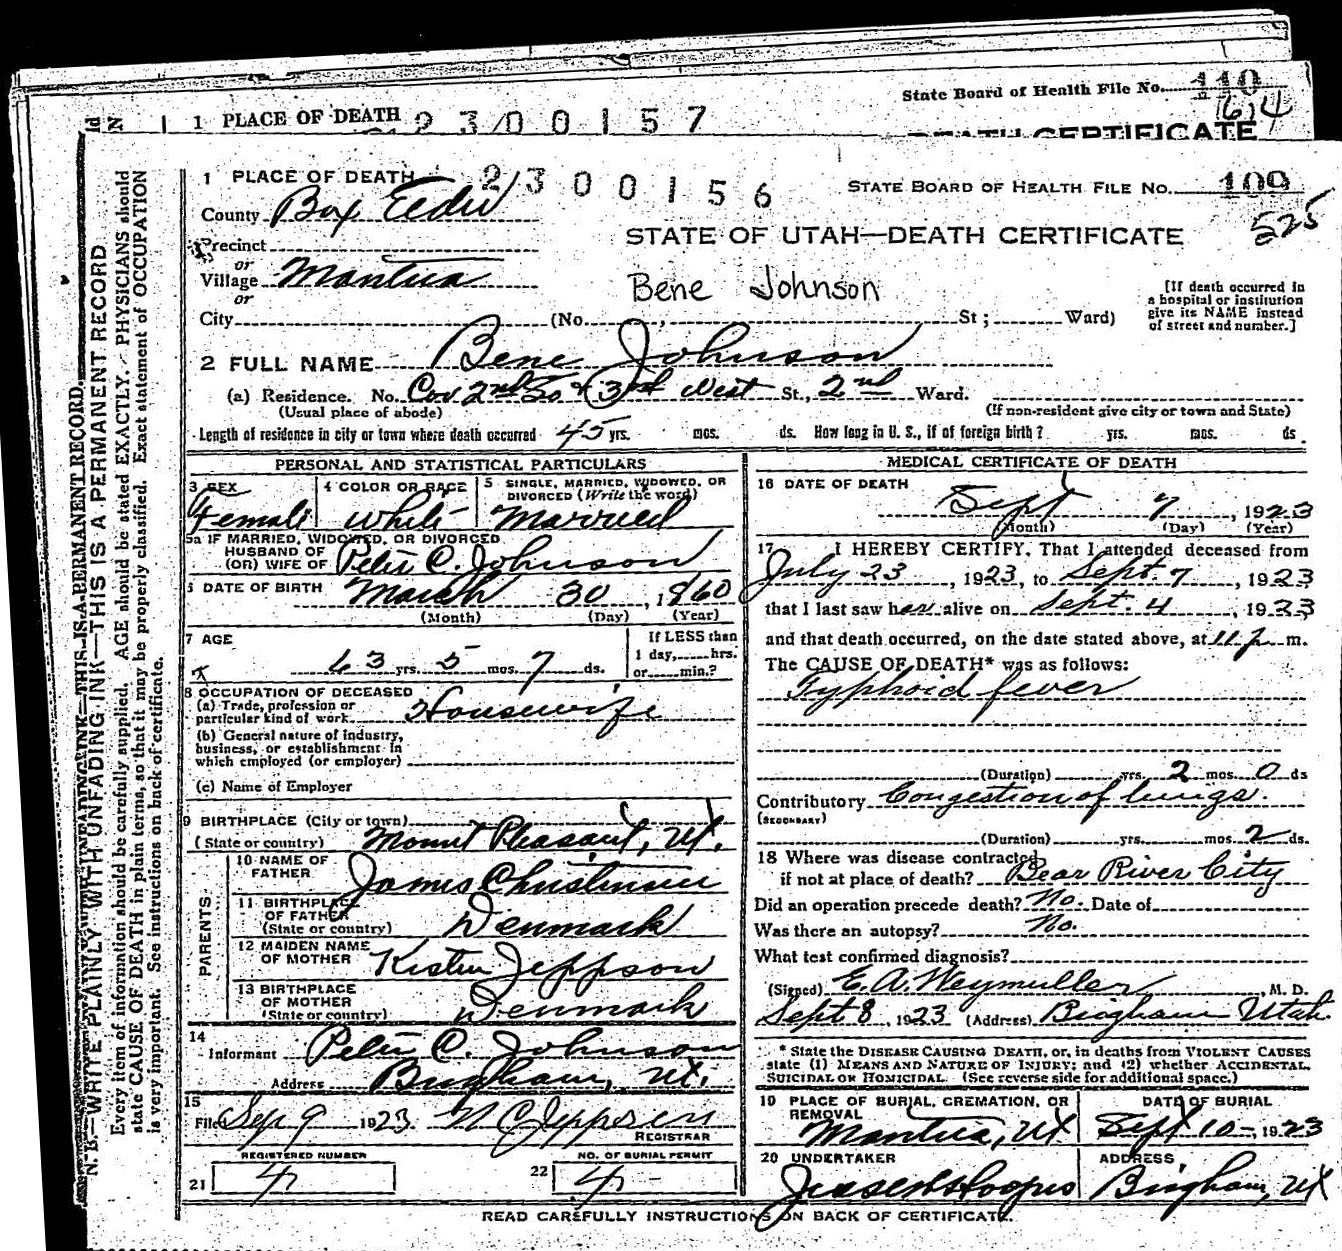 State Board of Health File No. 110
614
1 PLACE OF DEATH 2300157
DEATH CERTIFICATE
1 PLACE OF DEATH 2300156 STATE BOARD OF HEALTH FILE NO. 109
525
County Box Elder
STATE OF UTAH—DEATH CERTIFICATE
Precinct
or
Village Mantua
or
Bene Johnson
[If death occurred in a hospital or institution give its NAME instead of street and number.]
City (No. , St ; Ward)
2 FULL NAME Bene Johnson
(a) Residence. No. Cor 2nd So & 3rd West St., 2nd Ward.
(Usual place of abode) (If non-resident give city or town and State)
Length of residence in city or town where death occurred 45 yrs. mos. ds. How long in U. S., if of foreign birth? yrs. mos. ds.
PERSONAL AND STATISTICAL PARTICULARS
3 SEX
Female
4 COLOR OR RACE
White
5 SINGLE, MARRIED, WIDOWED, OR DIVORCED (Write the word)
Married
5a IF MARRIED, WIDOWED, OR DIVORCED
HUSBAND OF
(OR) WIFE OF Peter C. Johnson
6 DATE OF BIRTH March 30, 1860
(Month) (Day) (Year)
7 AGE
63 yrs. 5 mos. 7 ds.
If LESS than
1 day, hrs.
or min.?
8 OCCUPATION OF DECEASED
(a) Trade, profession or
particular kind of work Housewife
(b) General nature of industry,
business, or establishment in
which employed (or employer)
(c) Name of Employer
9 BIRTHPLACE (City or town)
(State or country) Mount Pleasant, Ut.
PARENTS
10 NAME OF
FATHER James Christensen
11 BIRTHPLACE
OF FATHER
(State or country) Denmark
12 MAIDEN NAME
OF MOTHER Kisten Jeppson
13 BIRTHPLACE
OF MOTHER
(State or country) Denmark
14
Informant Peter C. Johnson
Address Brigham, Ut.
15
Filed Sep 9 1923 N C Jeppsen
REGISTRAR
REGISTERED NUMBER NO. OF BURIAL PERMIT
21 4 22 4
MEDICAL CERTIFICATE OF DEATH
16 DATE OF DEATH
Sept 7, 1923
(Month) (Day) (Year)
17 I HEREBY CERTIFY, That I attended deceased from
July 23, 1923, to Sept. 7, 1923
that I last saw her alive on Sept. 4, 1923
and that death occurred, on the date stated above, at 11 p m.
The CAUSE OF DEATH* was as follows:
Typhoid fever
(Duration) yrs. 2 mos. 0 ds
Contributory Congestion of lungs.
(SECONDARY)
(Duration) yrs. mos. 2 ds.
18 Where was disease contracted
if not at place of death? Bear River City
Did an operation precede death? No. Date of
Was there an autopsy? No.
What test confirmed diagnosis?
(Signed) E. A. Weymuller, M. D.
Sept 8, 1923 (Address) Brigham Utah.
* State the DISEASE CAUSING DEATH, or, in deaths from VIOLENT CAUSES
state (1) MEANS AND NATURE OF INJURY; and (2) whether ACCIDENTAL,
SUICIDAL OR HOMICIDAL. (See reverse side for additional space.)
19 PLACE OF BURIAL, CREMATION, OR
REMOVAL
Mantua, Ut
DATE OF BURIAL
Sept 10, 1923
20 UNDERTAKER
ADDRESS
Brigham, Ut
READ CAREFULLY INSTRUCTIONS ON BACK OF CERTIFICATE.
N. B.—WRITE PLAINLY WITH UNFADING INK—THIS IS A PERMANENT RECORD
Every item of information should be carefully supplied. AGE should be stated EXACTLY. PHYSICIANS should
state CAUSE OF DEATH in plain terms, so that it may be properly classified. Exact statement of OCCUPATION
is very important. See instructions on back of certificate.